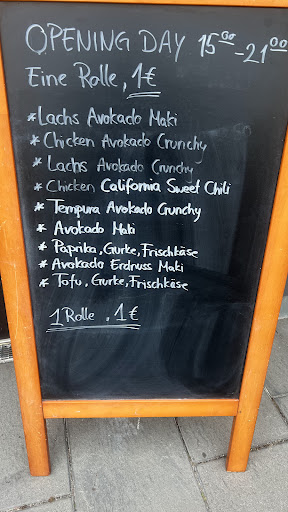 OPENING DAY 15⁰⁰-21⁰⁰
Eine Rolle, 1€
* Lachs Avokado Maki
* Chicken Avokado Crunchy
* Lachs Avokado Crunchy
* Chicken California Sweet Chili
* Tempura Avokado Crunchy
* Avokado Maki
* Paprika, Gurke, Frischkäse
* Avokado Erdnuss Maki
* Tofu, Gurke, Frischkäse
1 Rolle, 1€